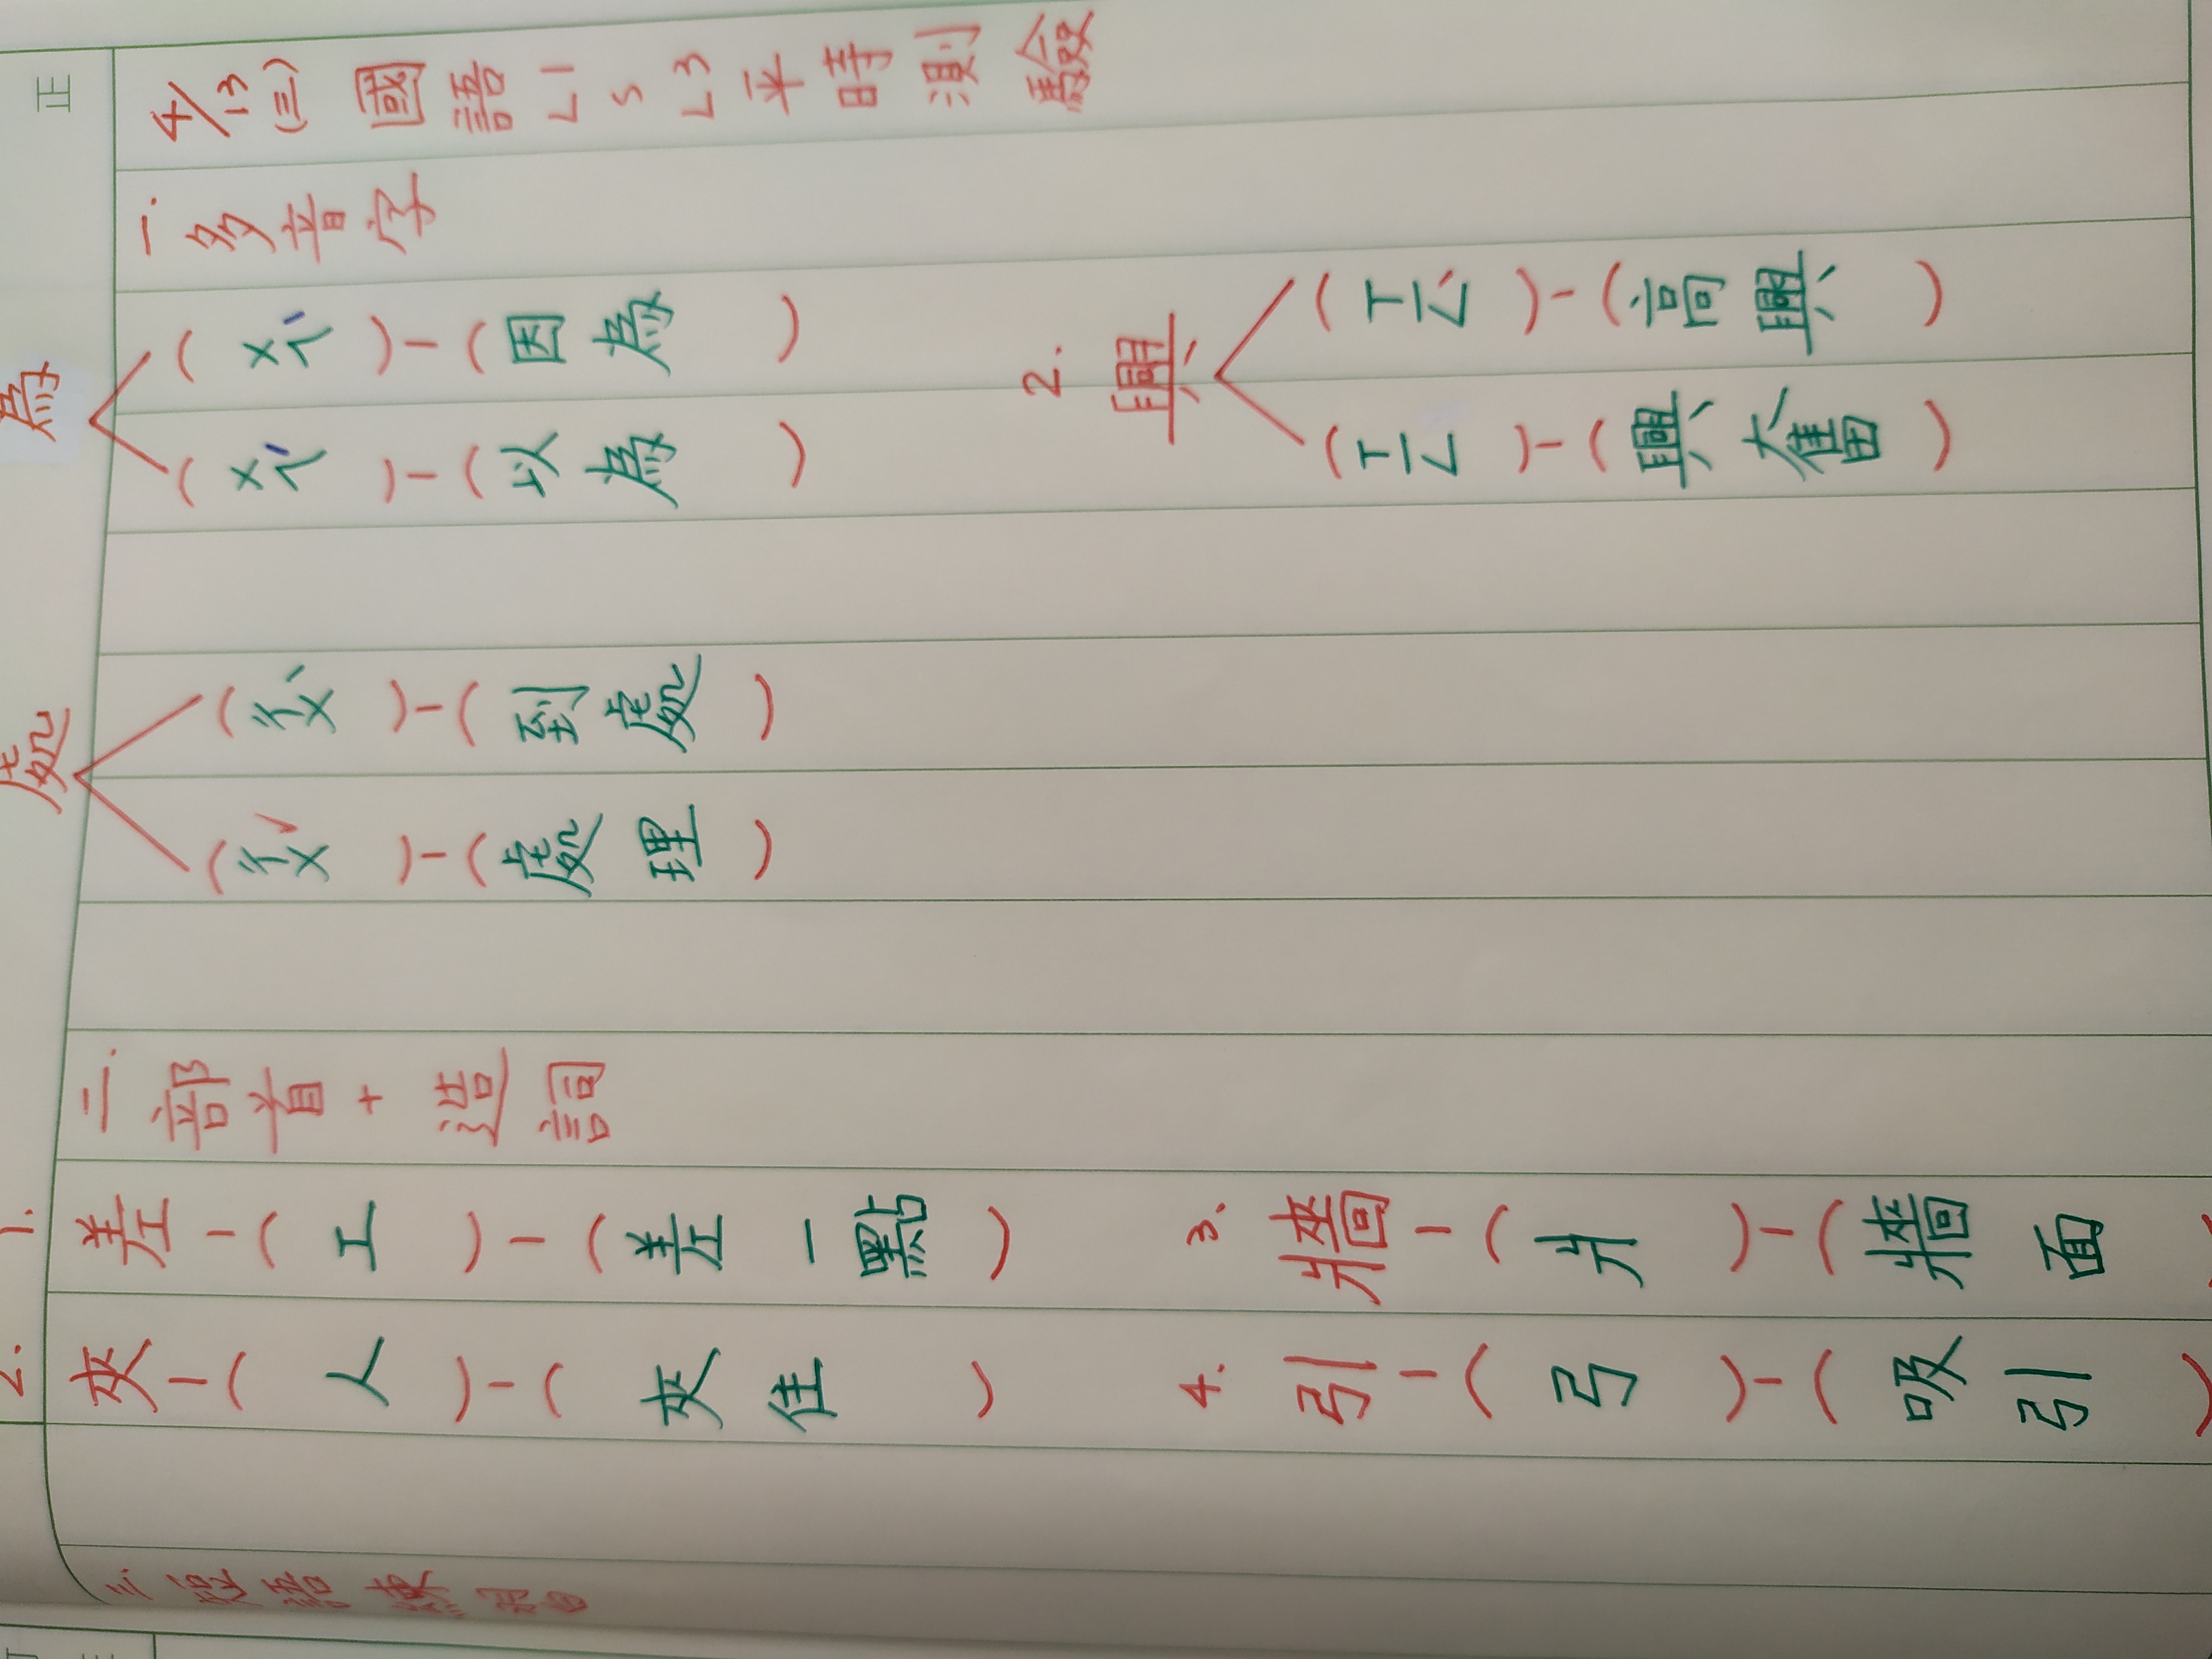 正
4/13(三)國語L1~L3平時測驗
一.多音字
為
(ㄨㄟˋ)-(因為)
(ㄨㄟˊ)-(以為)
2.興
(ㄒㄧㄥˋ)-(高興)
(ㄒㄧㄥ)-(興奮)
處
(ㄔㄨˋ)-(到處)
(ㄔㄨˇ)-(處理)
二.部首+造詞
1.差-(工)-(差一點)
3.牆-(爿)-(牆面)
2.夾-(人)-(夾住)
4.引-(弓)-(吸引)